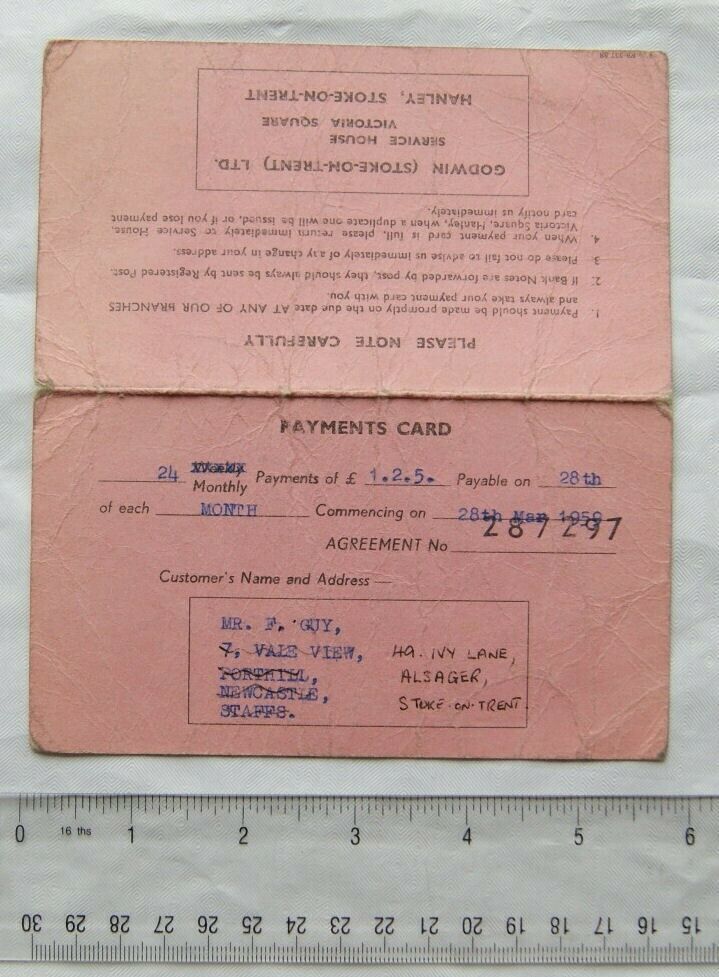 GODWIN (STOKE-ON-TRENT) LTD.
SERVICE HOUSE
VICTORIA SQUARE
HANLEY, STOKE-ON-TRENT
PLEASE NOTE CAREFULLY
1. Payment should be made promptly on the due date AT ANY OF OUR BRANCHES
and always take your payment card with you.
2. If Bank Notes are forwarded by post, they should always be sent by Registered Post.
3 Please do not fail to advise us immediately of any change in your address.
4. When your payment card is full, please return immediately to Service House,
Victoria Square, Hanley, when a duplicate one will be issued, or if you lose payment
card notify us immediately.
PAYMENTS CARD
24 Weekly Payments of £ 1.2.5. Payable on 28th
Monthly
of each MONTH Commencing on 28th Mar 1959
AGREEMENT No 287297
Customer's Name and Address —
MR. F. GUY,
7, VALE VIEW, 49. IVY LANE,
PORTHILL, ALSAGER,
NEWCASTLE, STOKE-ON-TRENT
STAFFS.
0 16 ths 1 2 3 4 5 6
30 29 28 27 26 25 24 23 22 21 20 19 18 17 16 15